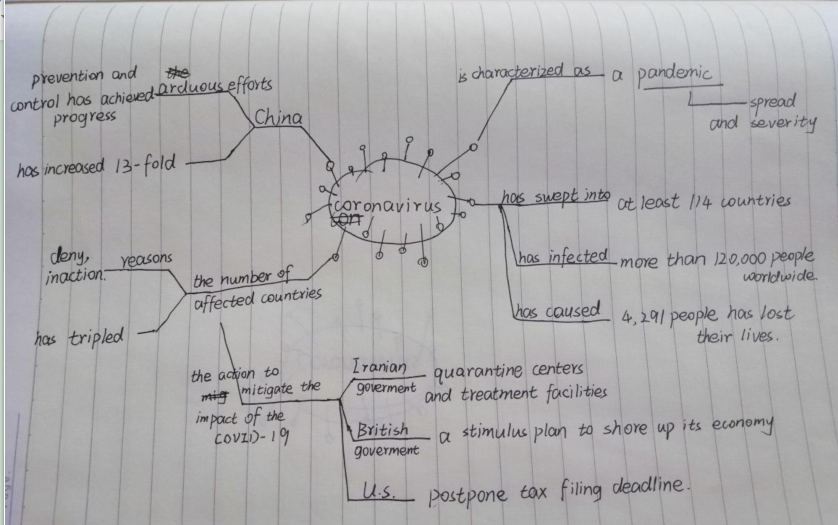 prevention and
control has achieved
progress
the
arduous efforts
China
has increased 13-fold
is characterized as
a pandemic
spread
and severity
coronavirus
has swept into
at least 114 countries
has infected
more than 120,000 people
worldwide.
has caused
4,291 people has lost
their lives.
deny,
inaction.
reasons
the number of
affected countries
has tripled
the action to
mig mitigate the
impact of the
COVID-19
Iranian
goverment
quarantine centers
and treatment facilities
British
goverment
a stimulus plan to shore up its economy
U.S.
postpone tax filing deadline.